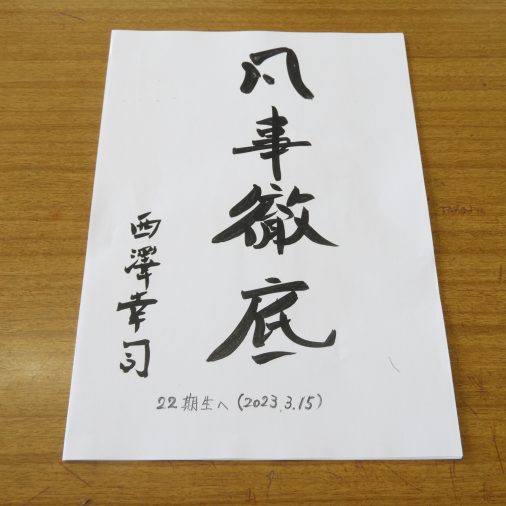 凡事徹底
西澤幸司
22期生へ (2023.3.15)